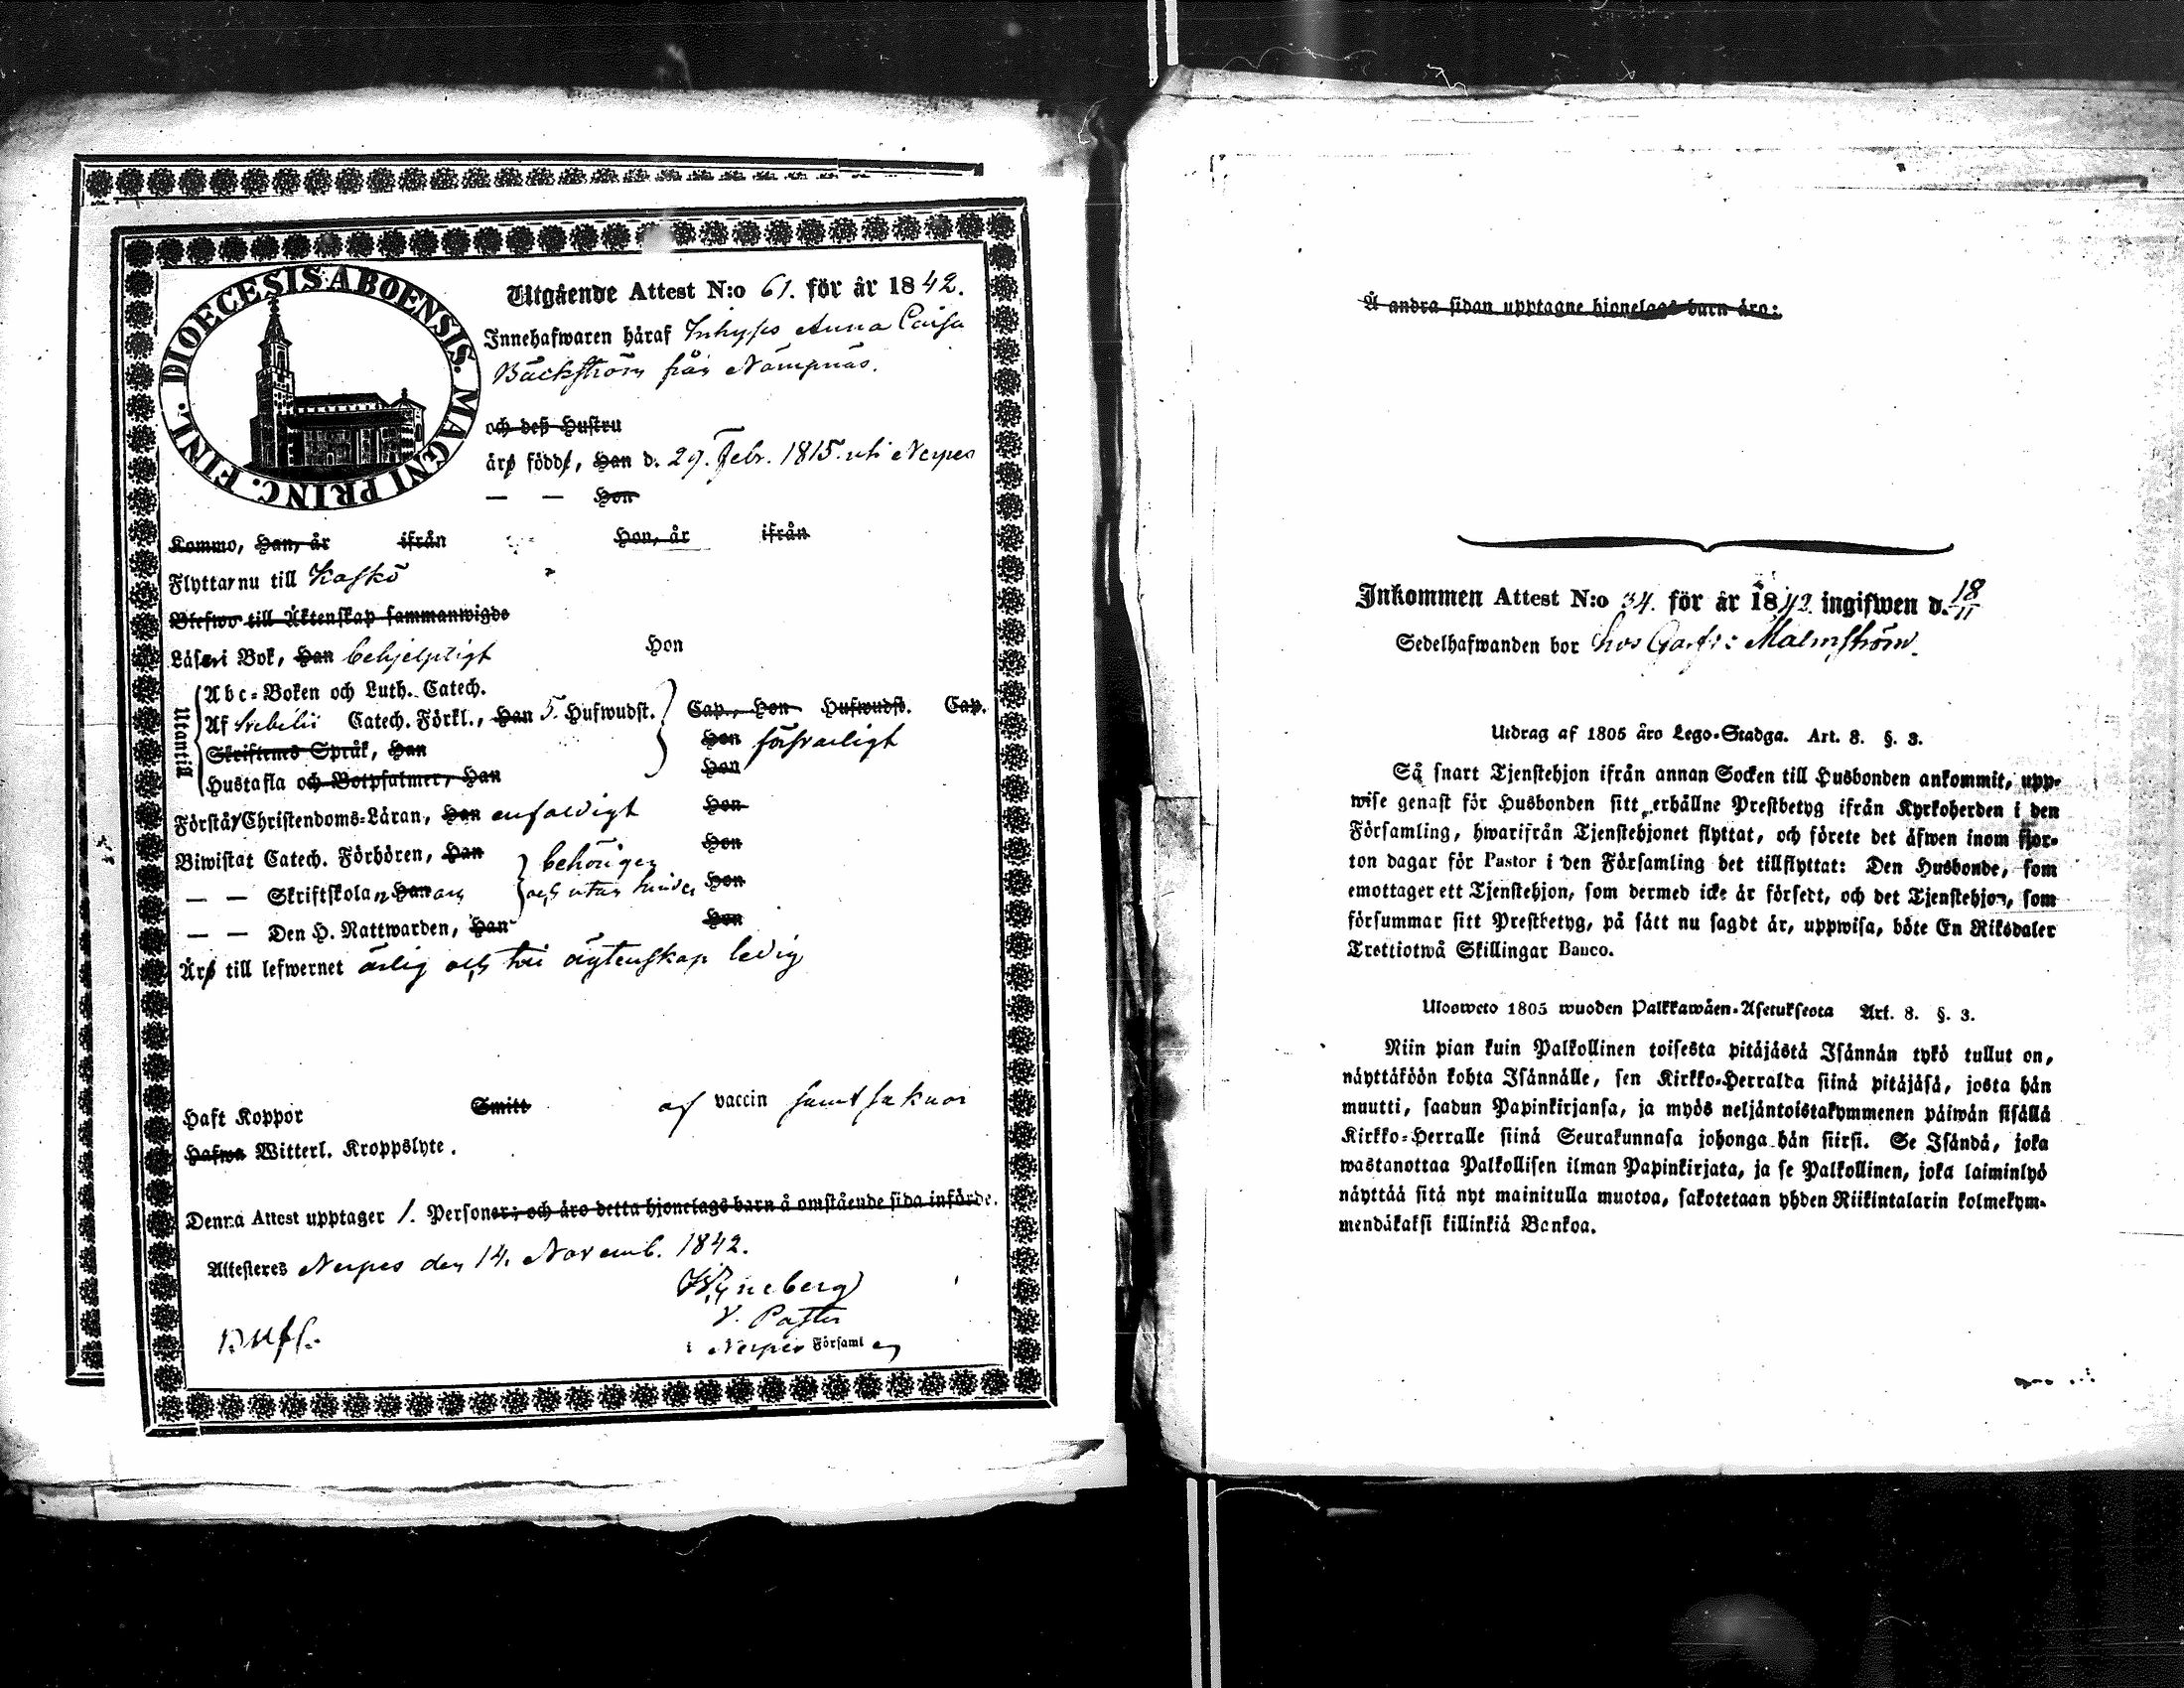 DIOECESIS ABOENSIS. MAGNI PRINC. FINL.
Utgående Attest N:o 61. för år 1842.
Innehafwaren häraf Inhyses Anna Caisa
Bäckström från Nämpnäs.
och deß Hustru
äro födde, Han d. 29. Febr. 1815. uti Nerpes
— — Hon
Kommo, Han, år ifrån Hon, år ifrån
Flyttar nu till Kaskö
Blefwo till Äktenskap sammanwigde
Läser i Bok, Han behjelpligt Hon
Utantill
Abc-Boken och Luth. Catech.
Af Svebelii Catech. Förkl., Han 5. Hufwudst. Cap., Hon Hufwudst. Cap.
Skriftenes Språk, Han Hon försvarligt
Hustafla och Botpsalmer, Han Hon
Förstår Christendoms-Läran, Han enfaldigt Hon
Biwistat Catech. Förhören, Han behörigen Hon
— — Skriftskolan Han och utan hinder Hon
— — Den H. Nattwarden, Han Hon
Äro till lefwernet ärlig och till ägtenskap ledig
Haft Koppor Smitt af vaccin samt
Hafwa Witterl. Kroppslyte.
Denna Attest upptager 1. Personer; och äro detta hjonelags barn å omstående sida införde.
Attesteres Nerpes den 14. Novemb. 1842.
V. Pastor
i Nerpes Församl
Å andra sidan upptagne hjonelags barn äro:
Inkommen Attest N:o 34. för år 1842. ingifwen d. 18/11
Sedelhafwanden bor hos Garf:: Malmström.
Utdrag af 1805 åro Lego-Stadga. Art. 8. §. 3.
Så snart Tjenstehjon ifrån annan Socken till Husbonden ankommit, upp-
wise genast för Husbonden sitt erhållne Prestbetyg ifrån Kyrkoherden i den
Församling, hwarifrån Tjenstehjonet flyttat, och förete det äfwen inom fjor-
ton dagar för Pastor i den Församling det tillflyttat: Den Husbonde, som
emottager ett Tjenstehjon, som dermed icke är försedt, och det Tjenstehjon, som
försummar sitt Prestbetyg, på sätt nu sagdt är, uppwisa, böte En Riksdaler
Trettiotwå Skillingar Banco.
Uloosweto 1805 wuoden Palkkawäen-Asetuksesta Art. 8. §. 3.
Niin pian kuin Palkollinen toisesta pitäjästä Isännän tykö tullut on,
näyttäköön kohta Isännälle, sen Kirkko-Herralda siinä pitäjäsä, josta hän
muutti, saadun Papinkirjansa, ja myös neljäntoistakymmenen päiwän sisällä
Kirkko-Herralle siinä Seurakunnasa johonga hän siirsi. Se Isändä, joka
wastanottaa Palkollisen ilman Papinkirjata, ja se Palkollinen, joka laiminlyö
näyttää sitä nyt mainitulla muotoa, sakotetaan yhden Riikintalarin kolmekym-
mendäkaksi killinkiä Bankoa.